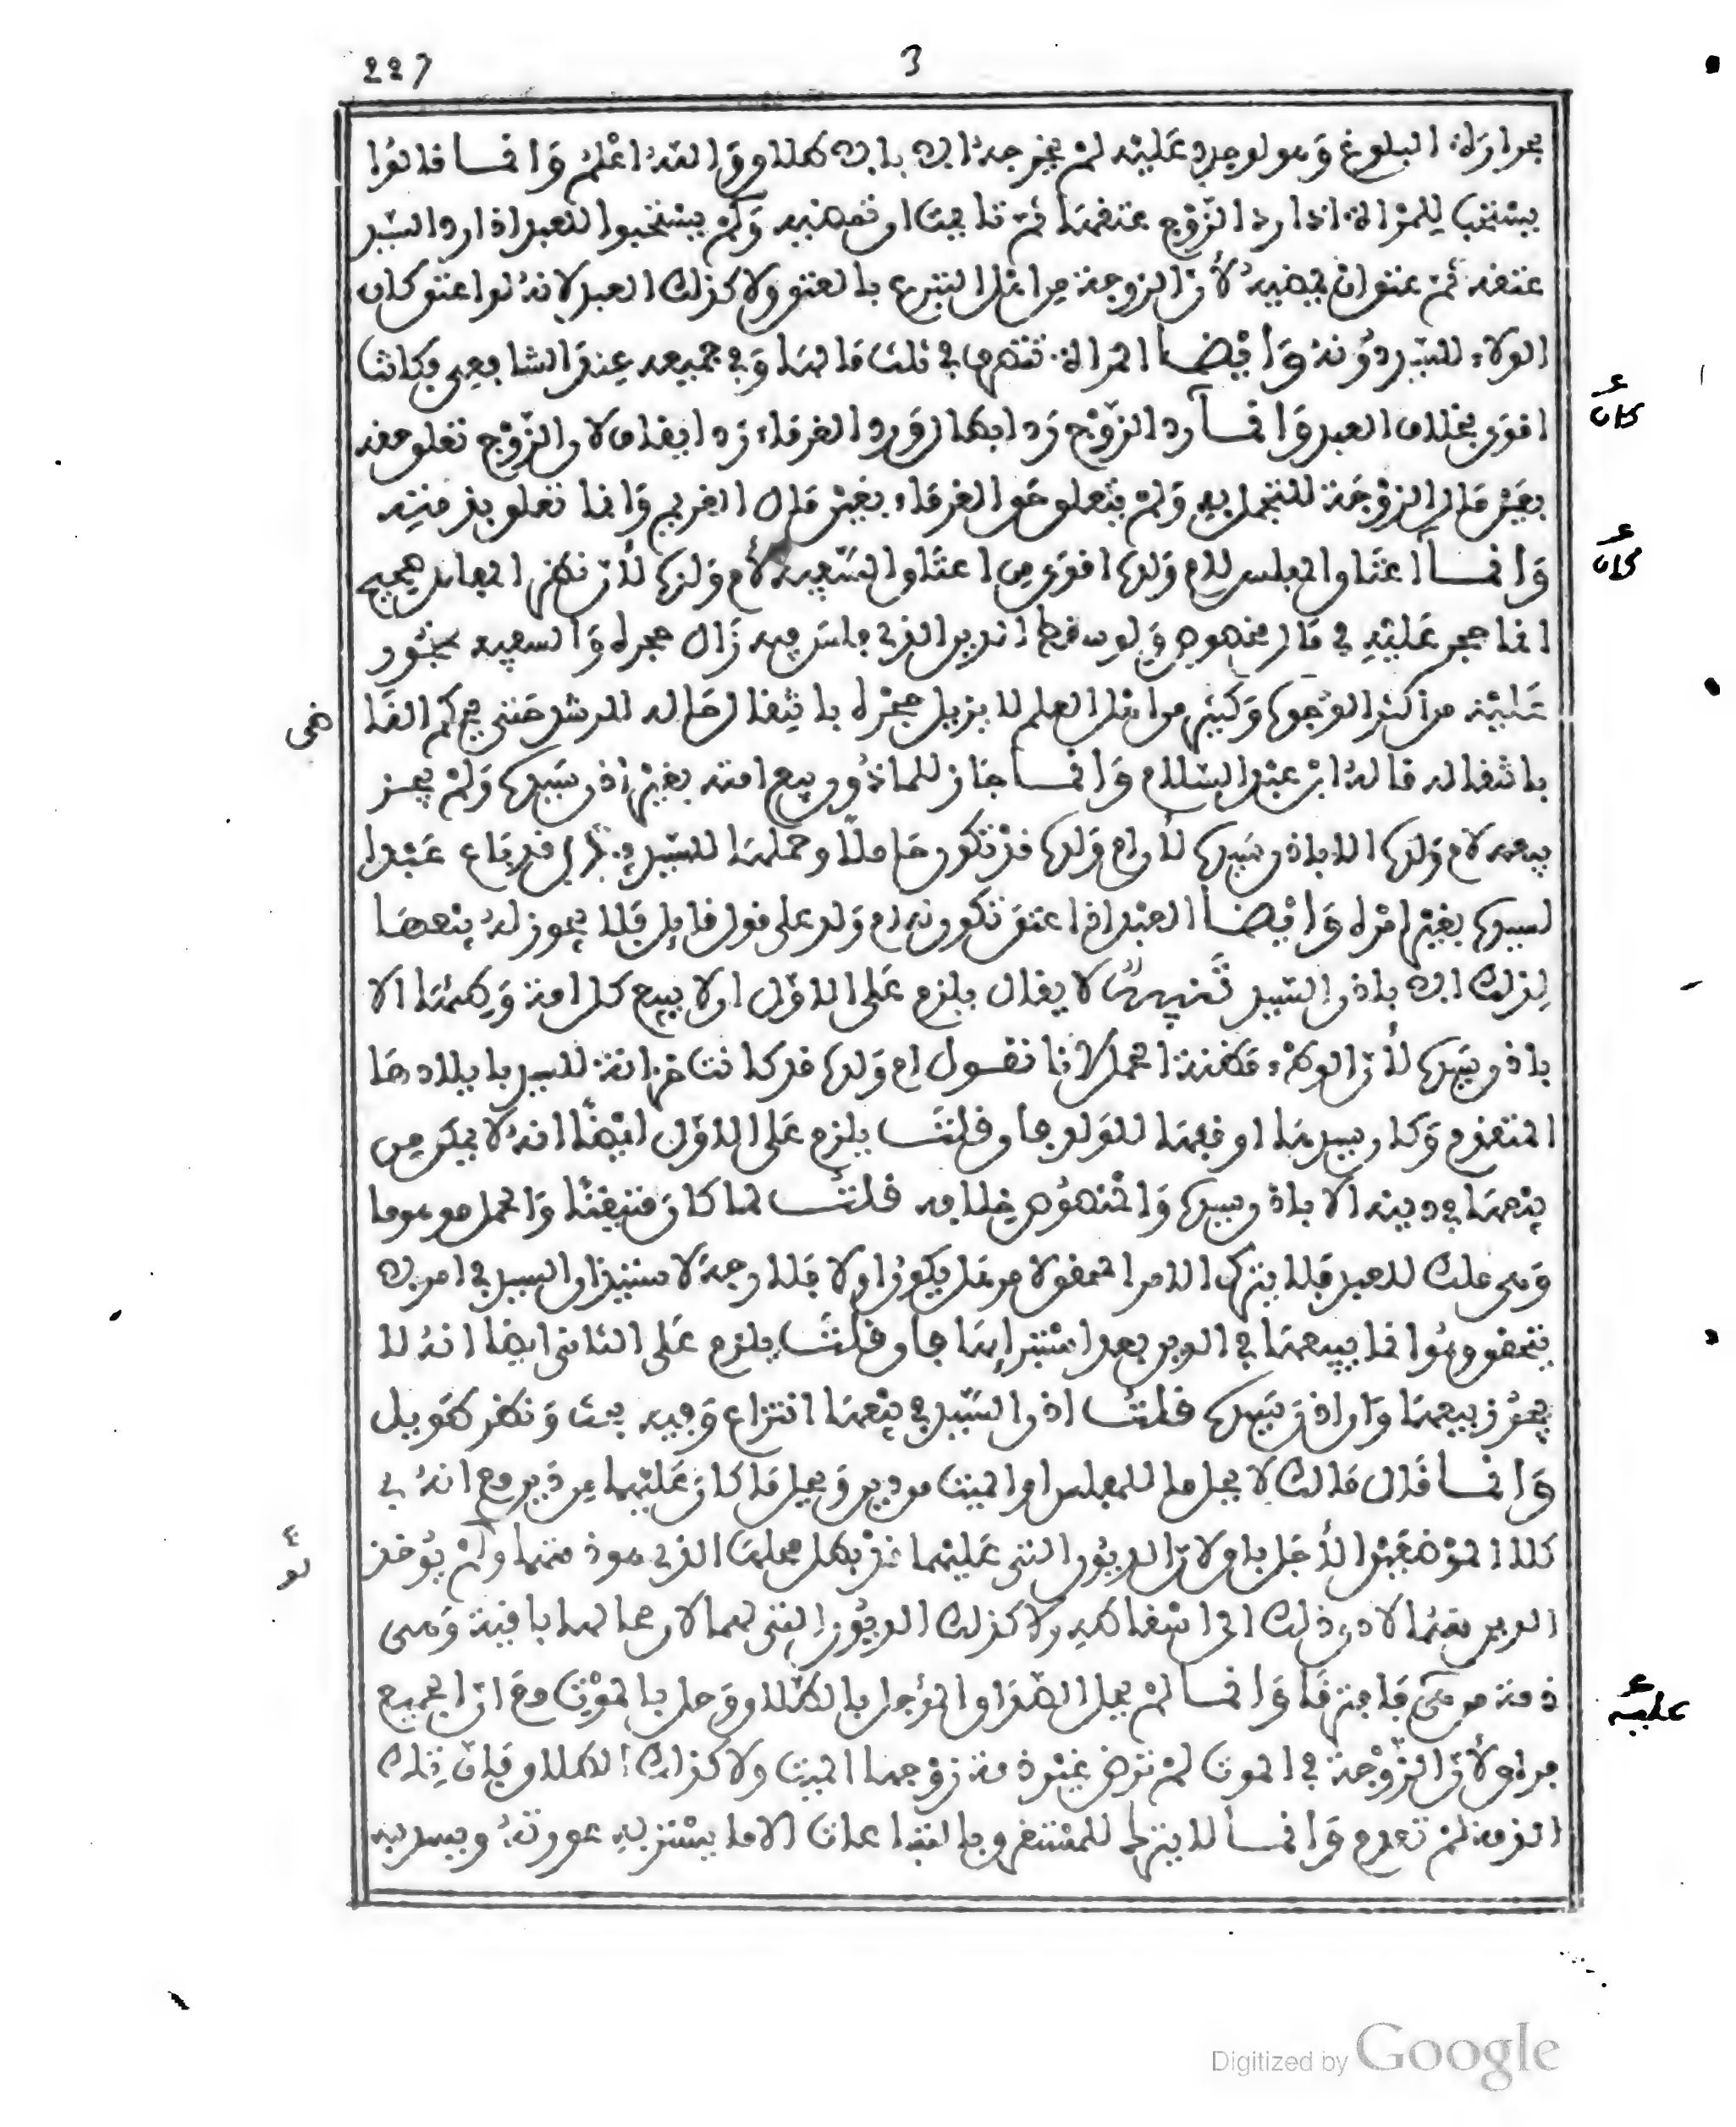 227 3
البلوغ وهو لو عليه لم يخرج منه الا بالاطلاق والله اعلم وانما قالوا
يستحب للمراة اذا رد الزوج عتقها ثم تايمت ان تمضيه ولم يستحبوا للعبد اذا رد السيد
عتقه ثم عتق ان يمضيه لأن الزوجة من اهل التبرع بالعتق ولا كذلك العبد لانه لو اعتق كان
الولاء للسيد دونه وايضا المراة تتصرف في ثلث مالها وفي جميعه عند الشافعي فكانت
اقوى بخلاف العبد وانما رد الزوج رد ابطال ورد الغرماء رد ايقاف لان الزوج تعلق حقه
بعين مال الزوجة للتجمل به ولم يتعلق حق الغرماء بعين مال الغريم وانما تعلق بذمته
وانما اعتاق المفلس لام ولده اقوى من اعتاق السفيه لام ولده لأن نظر المفلس صحيح
انما حجر عليه في مال مخصوص ولو سقط الدين الذي فلس فيه زال حجره والسفيه محجور
عليه من اكثر الوجوه وكثير من اهل العلم لا يزيل حجره بانتقال حاله للرشد حتى يحكم القا ضى
بانتقاله قاله ابن عبد السلام وانما جاز للماذون بيع امته بغير إذن سيده ولم يجز
بيعه لام ولده الا باذن سيده لأن ام ولده قد تكون حاملا وحملها للسيد قد باع عبدا
لسيده بغير امره وايضا العبد اذا اعتق تكون له ام ولد على قول قايل فلا يجوز له بيعها
لذلك الا باذن السيد تنبيه لا يقال يلزم على الاول ان لا يبيع كل امة وطئها الا
باذن سيده لأن الوطء مظنة الحمل لانا نقول ام ولده قد كانت خزانة للسيد بايلادها
المتقدم وكان سيدها اوقفها للولد فان قلت يلزم على الاول ايضا انه لا يمكن من
بيعها في دينه الا باذن سيده والمنصوص خلافه قلت لما كان متيقنا والحمل موهوما
وهي ملك للعبد فلا يترك الامر المحقق لامر قد يكون او لا فلا وجه لاستيذان السيد في امر لا
يتحقق وهو انما يبيعها في الدين بعد استبرايها فان قلت يلزم على الثاني ايضا انه لا
يجوز بيعها وان اذن سيده قلت اذن السيد في بيعها انتزاع وفيه بحث ونظر طويل
وانما قال مالك لا يحل ما للمفلس او الميت من دين ويحل ما كان عليهما من دين مع انه في
كلا الموضعين الأجل باق لان الديون التي عليهما قد بطل محلها الذي هو ذمتهما ولم يوخذ
الدين لان ذلك الى اسقاطه ولا كذلك الديون التي لهما لان محالها باقية وهي
ذمة من هي وانما لم يحل الصداق المؤجل بالطلاق وحل بالموت مع ان الجميع
فراق لأن الزوجة في الموت لم ترض بغير ذمة زوجها الميت ولا كذلك الطلاق فان تلك
الذمة لم تعدم وانما لا يترك للمستغرق بالتباعات الا ما يستر به عورته ويسد به
كان
كان
عليه
Digitized by Google